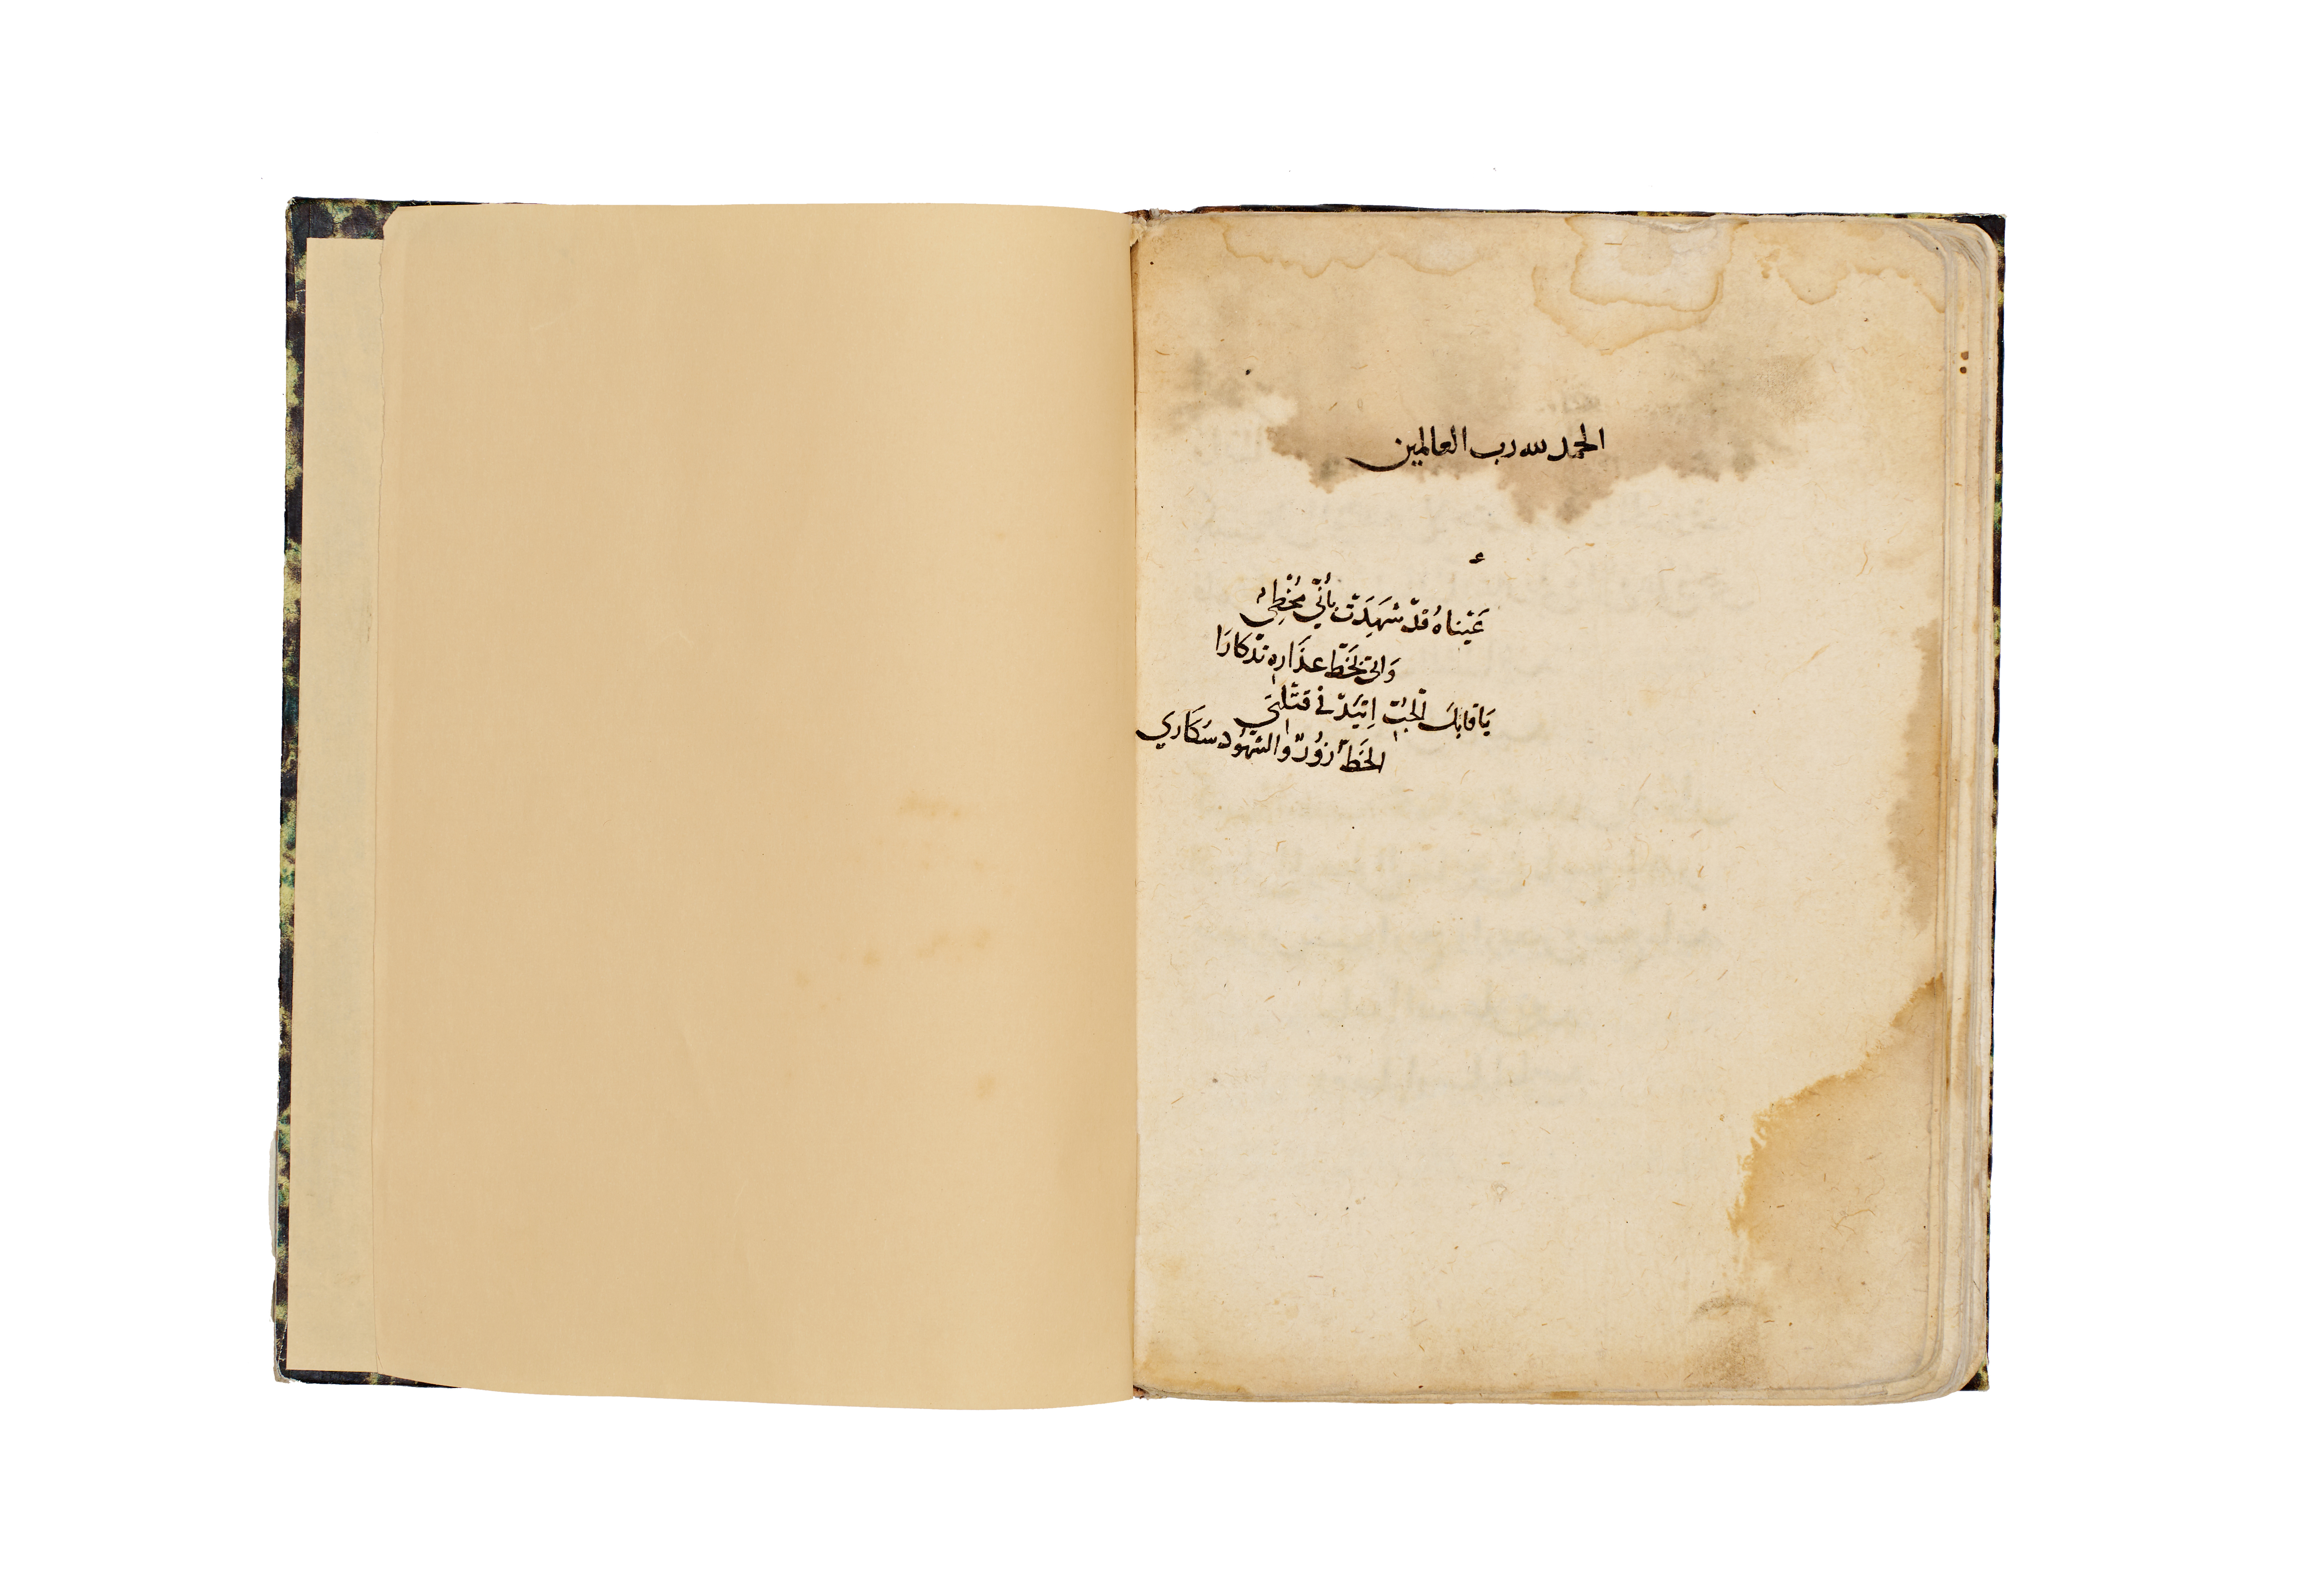 الحمد لله رب العالمين
عَيْناهُ قدْ شَهِدَتْ بأنّي مُخْطِئ
وَاتى بخَطّ عذَارِهِ تذكارَا
يَا قابلَ الحُبِّ اِتيَدْ في قتْلتي
الخَطّ زُورٌ والشهُود سَكَاري